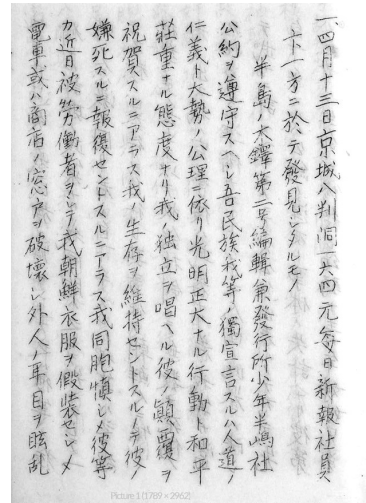 一、四月十三日京城八判洞一六四元毎日新報社員
卜一方ニ於テ發見シタルモノ
半島ノ木鐸第二号編輯兼發行所少年半嶋社
公約ヲ遵守スヘシ吾民族我等ノ獨宣言スルハ人道ノ
仁義ト大勢ノ公理ニ依リ光明正大ナル行動ト和平
莊重ナル態度ナリ我ノ独立ヲ唱ヘル彼ノ顛覆ヲ
祝賀スルニアラス我ノ生存ヲ維持セントスルノデ彼ノ
嫌死スルニ報復セントスルニアラス我同胞慎シメ彼等
カ近日被労働者ヲシテ我朝鮮衣服ヲ假装セシメ
電車或ハ商店ノ窓戸ヲ破壊シ外人ノ耳目ヲ眩乱
Picture 1 (1789 × 2962)